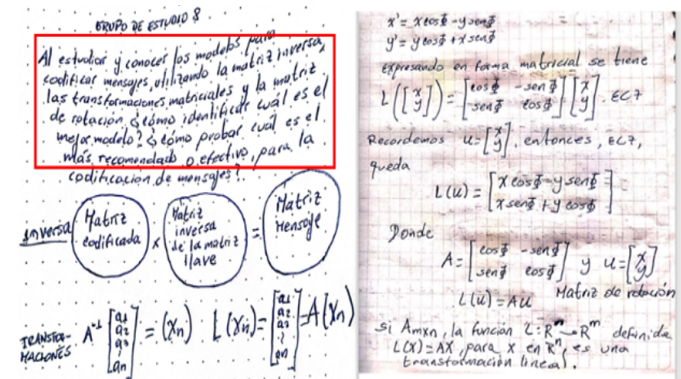 GRUPO DE ESTUDIO 8
Al estudiar y conocer los modelos para
codificar mensajes, utilizando la matriz inversa,
las transformaciones matriciales y la matriz
de rotación ¿cómo identificar cuál es el
mejor modelo? ¿cómo probar cuál es el
más recomendado o efectivo, para la
codificación de mensajes?
Inversa
Matriz codificada × Matriz inversa de la matriz llave = Matriz mensaje
TRANSFORMACIONES
A⁻¹ [a1 a2 a2 ⋮ an] = (Xn) L(Xn) = [a1 a2 a2 ⋮ an] = A(Xn)
x' = x cosΦ - y senΦ
y' = y cosΦ + x senΦ
Expresando en forma matricial se tiene
L([x y]) = [cosΦ -senΦ senΦ cosΦ] [x y]. EC7
Recordemos u = [x y]. entonces, EC7,
queda
L(u) = [x cosΦ - y senΦ x senΦ + y cosΦ]
Donde
A = [cosΦ -senΦ senΦ cosΦ] y u = [x y]
L(u) = Au Matriz de rotación
si Amxn, la función L: Rⁿ → Rᵐ definida
L(x) = AX, para x en Rⁿ, es una
transformación lineal.